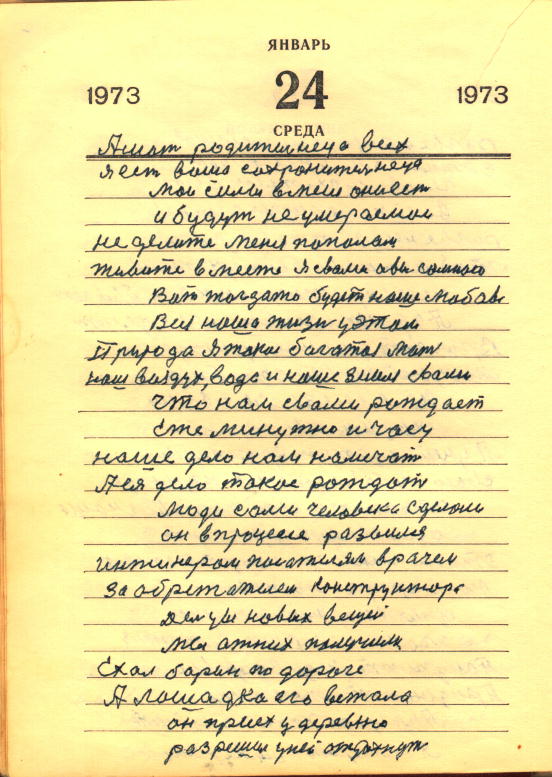 ЯНВАРЬ
1973 24 1973
СРЕДА
А мат родителнеца всех
я ест ваша сохронителнеца
мои сили в меня
и будут не умераемои
не делите меня пополам
живите вместе я свами а вы сомною
Вот тогдато будет наше
Вся наша жизн у этом
Природа я такая багатоя мат
наш воздух, вода и наше земля свами
что нам свами рождает
Еже минутно и часу
наше дело нам начат
А ея дело такое рождат
люди сами человека сделоли
он в процесе развился
инжинером писателям врачем
за обретателем конструктора
новых вещей
мы отних получили
Ехал барин по дороге
А лошадка его ветала
он приех у деревню
разрешил у ней отдохнут